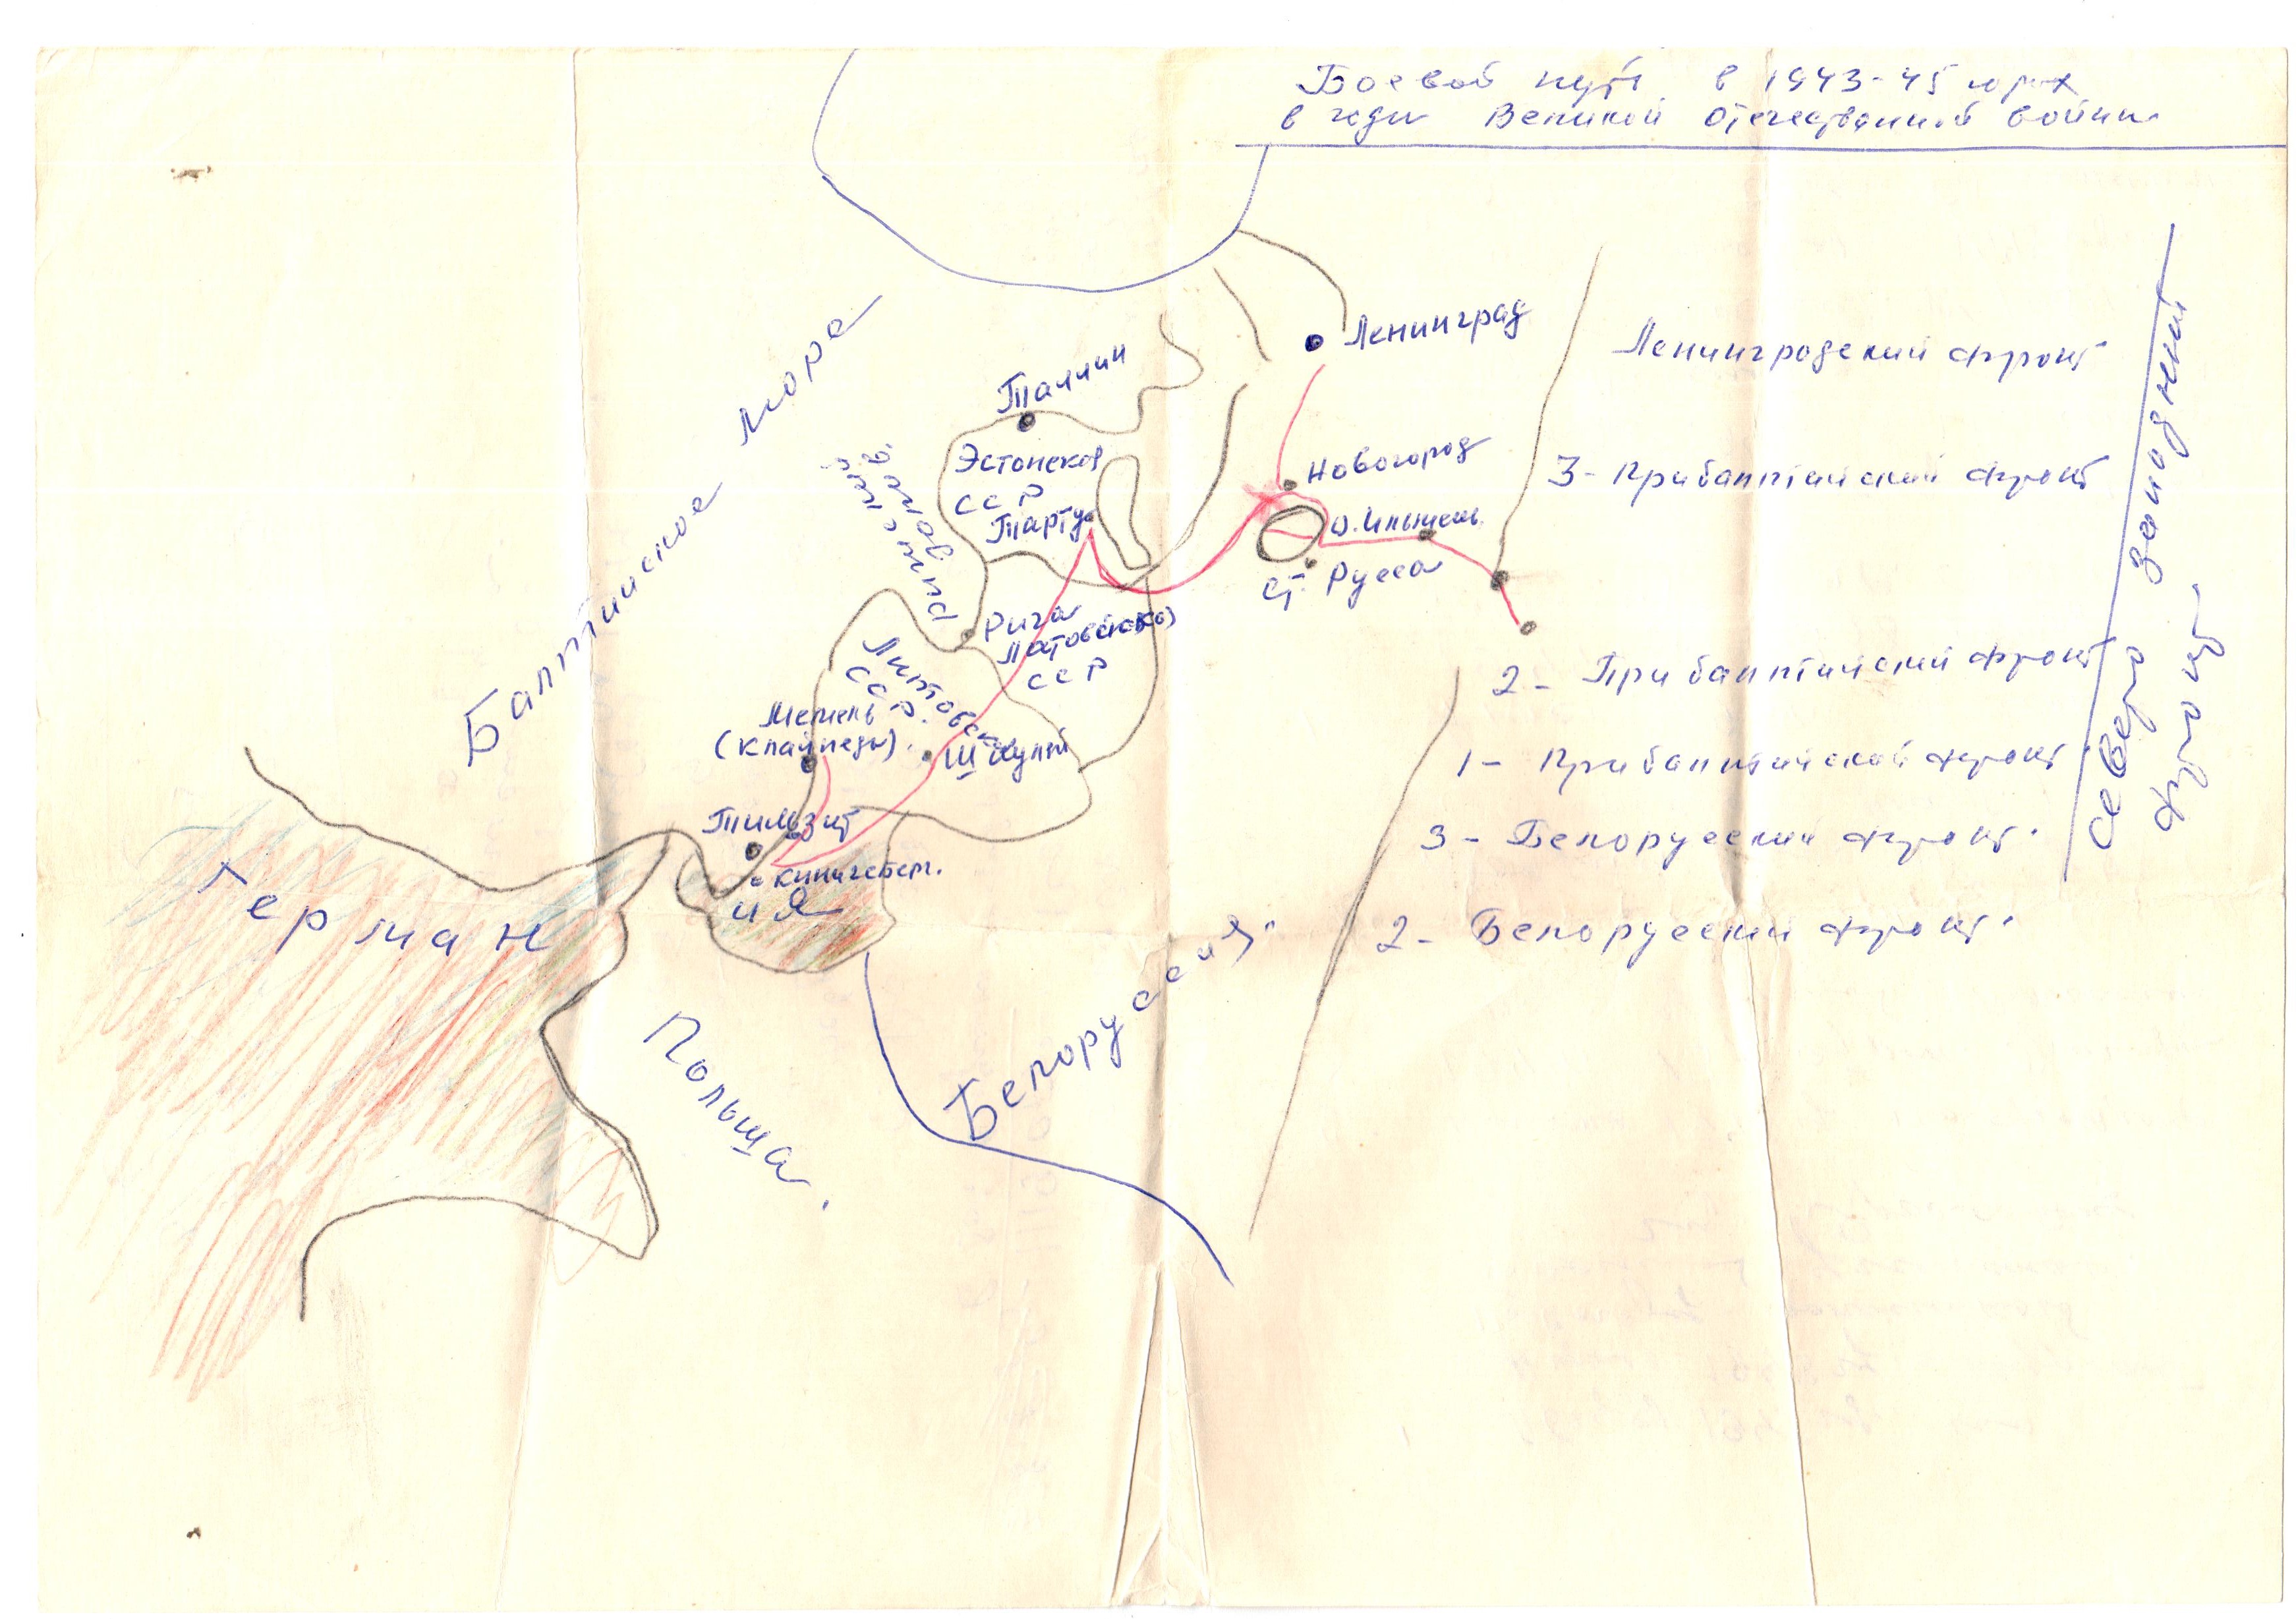 Боевой путь в 1943-45 годах
в годы Великой Отечественной войны
Ленинград
Ленинградский фронт
Северо западный
фронт
Балтийское море
Таллин
Эстонская
ССР
Тарту
Рижский
залив.
Новогород
о. Ильмень
Ст. Русса
3- Прибалтийский фронт
Рига
Латовийская)
ССР
2- Прибалтийский фронт
Литовская
ССР.
Мемель
(Клайпеды).
Шауляй
1- Прибалтийский фронт
Тильзит
Кинигсберг.
3- Белорусский фронт.
Герман
ия
2- Белорусский фронт.
Польша.
Белоруссия.